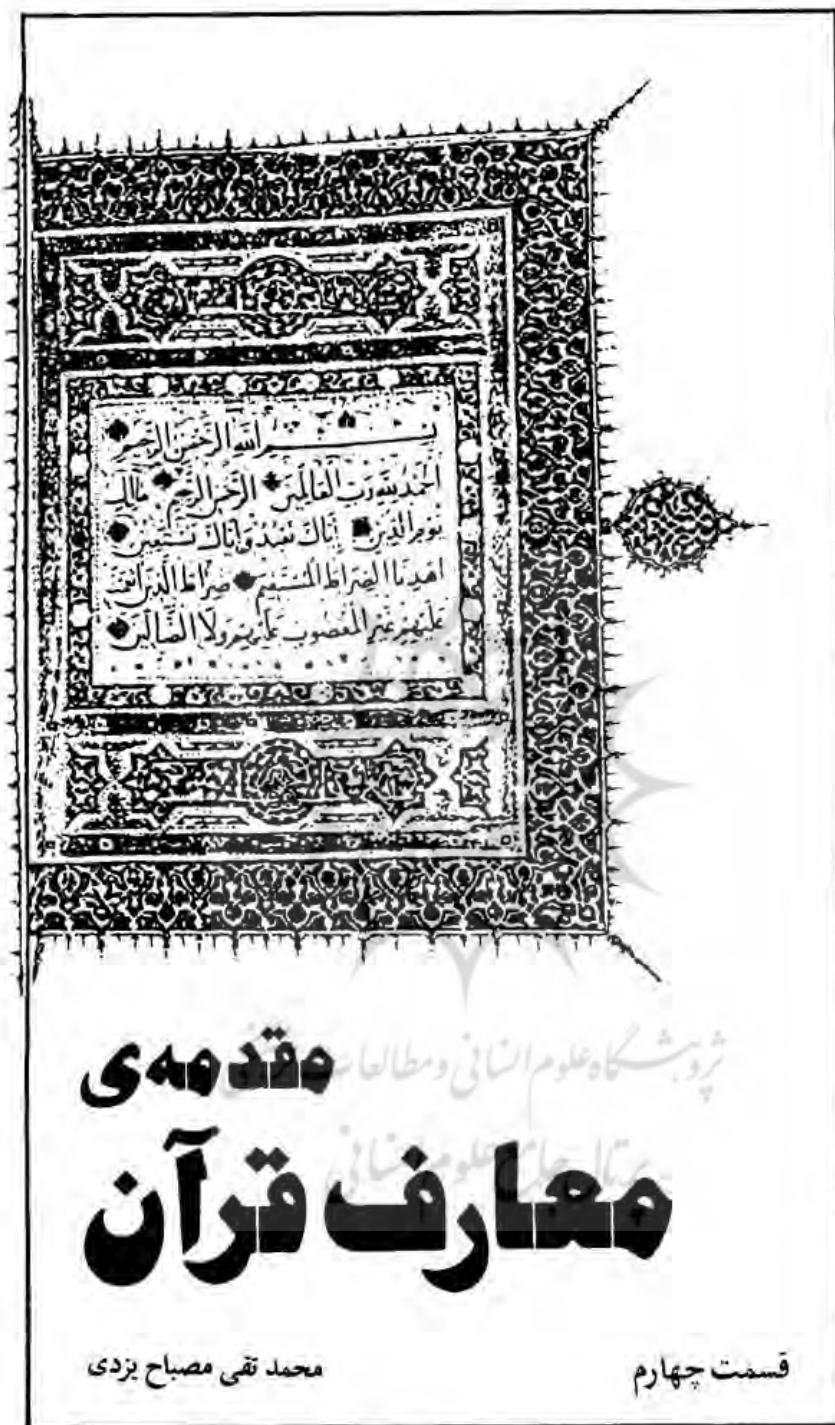 بسم الله الرحمن الرحيم
الحمد لله رب العالمين الرحمن الرحيم مالك
يوم الدين إياك نعبد وإياك نستعين
اهدنا الصراط المستقيم صراط الذين أنعمت
عليهم غير المغضوب عليهم ولا الضالين
مقدمه‌ی
پژوهشگاه علوم انسانی و مطالعات
معارف قرآن
پرتال جامع علوم انسانی
قسمت چهارم
محمد تقی مصباح یزدی